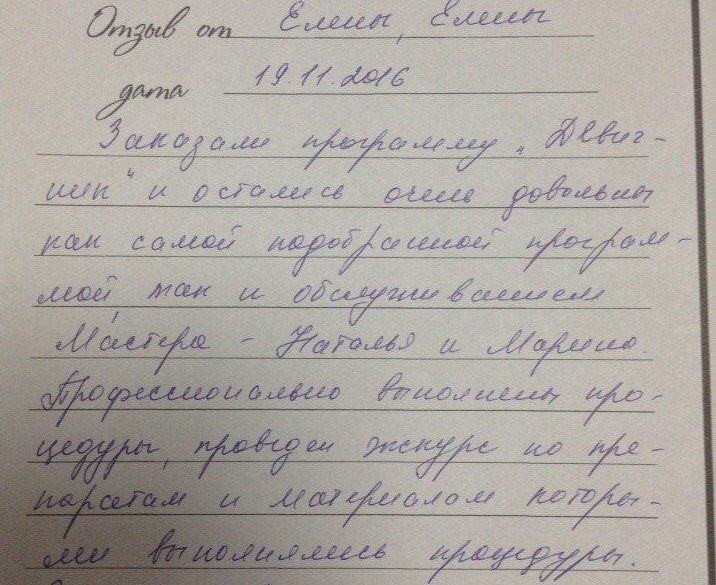 Отзыв от Елены, Елены
дата 19.11.2016
Заказали программу „Девич-
ник" и остались очень довольны
как самой подобранной програм-
мой, так и обслуживанием
Мастера - Наталья и Марина.
Профессионально выполнены про-
цедуры, проведен экскурс по пре-
паратам и материалам которы-
ми выполнялись процедуры.